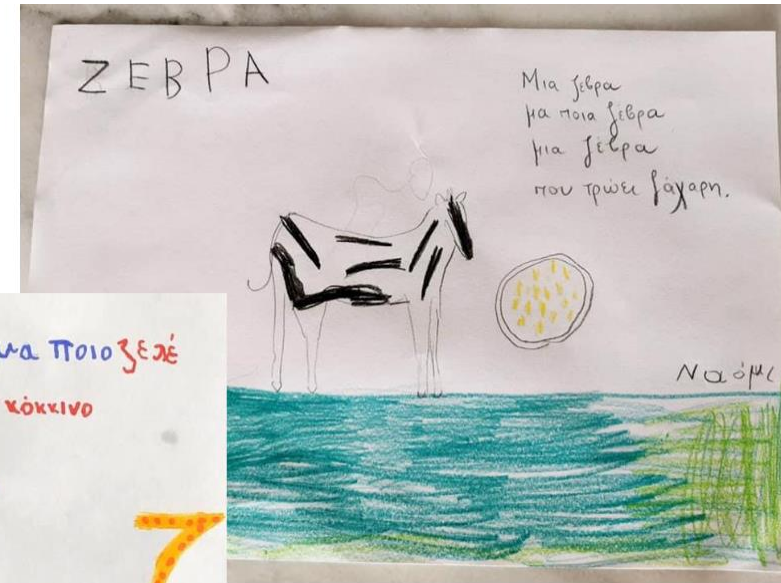 ΖΕΒΡΑ
Μια ζεβρα
μα ποια ζέβρα
μια ζέβρα
που τρώει ζάχαρη.
Ναόμι
μα ποιο ζελέ
κόκκινο
Ζ